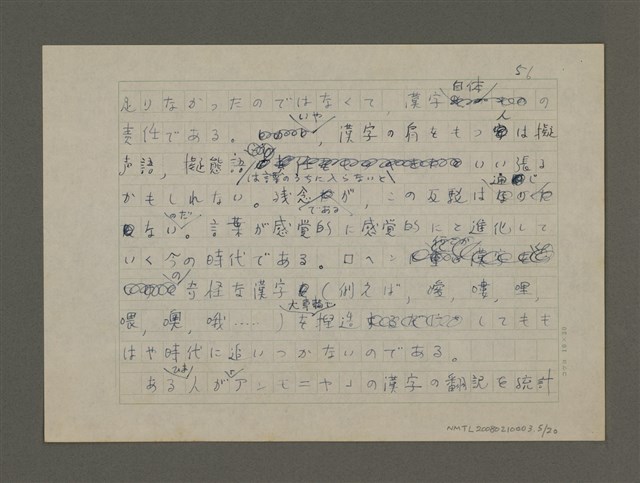 51
足りなかったのではなくて、漢字自体の
責任である。いや、漢字の肩をもつ人は擬
声語、擬態語は言葉のうちに入らないといい張る
かもしれない。残念である が、この反駁は通じ
ないのだ。言葉が感覚的に感覚的にと進化して
いく今の時代である。口ヘンに
の奇怪な漢字(例えば、噯、嘍、哩、
喂、噢、哦……)を大車輪で捏造してもも
はや時代に追いつかないのである。
ある人がアンモニヤの漢字の翻記を統計
NMTL20080210003.5/20